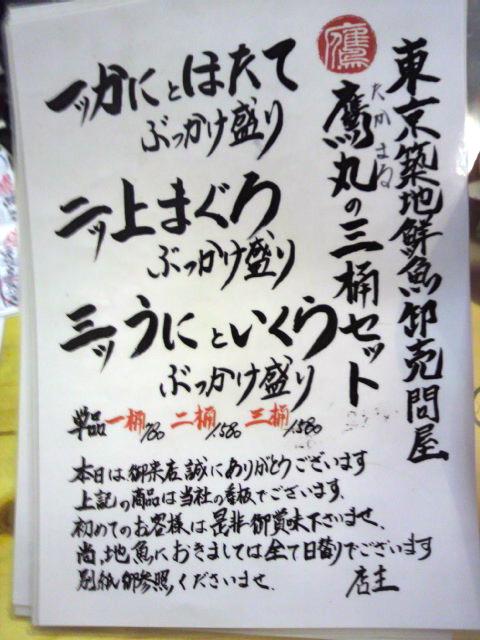 東京築地鮮魚卸売問屋
鷹
鷹丸の三桶セット
たかまる
一ッかにとほたて
ぶっかけ盛り
二ッ上まぐろ
ぶっかけ盛り
三ッうにといくら
ぶっかけ盛り
単品 一桶 二桶/1580 三桶/1580
本日は御来店誠にありがとうございます
上記の商品は当社の看板でございます、
初めてのお客様は是非御賞味下さいませ、
尚、地魚におきましては全て日替りでございます
別紙御参照くださいませ、
店主